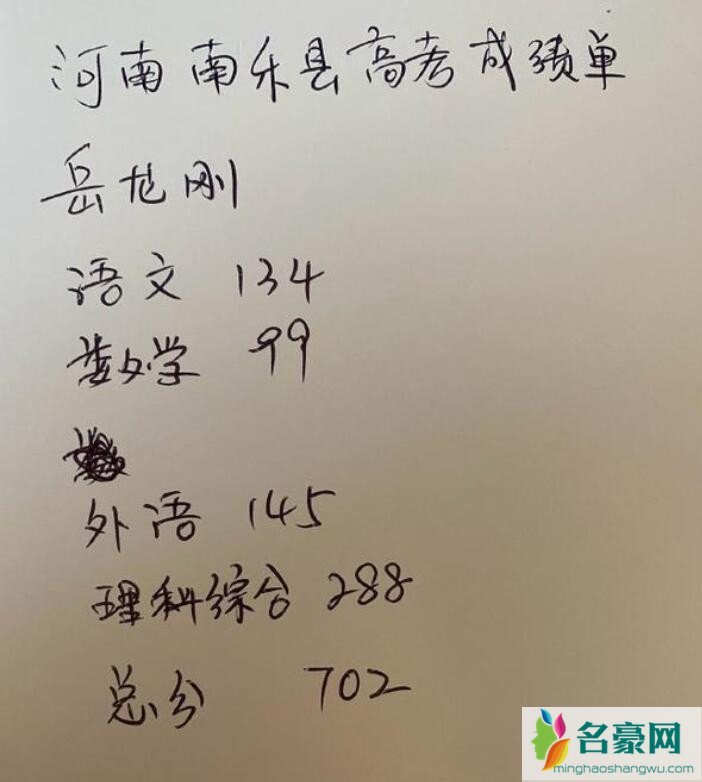 河南南乐县高考成绩单
岳龙刚
语文 134
数学 99
外语 145
理科综合 288
总分 702
名豪网
minghaoshangwu.com